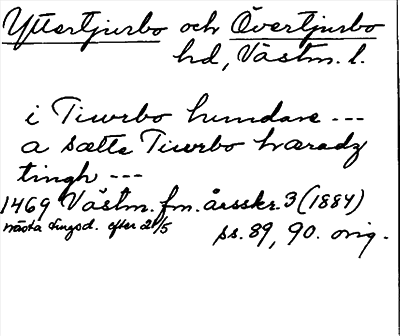 Yttertjurbo och Övertjurbo
hd, Västm. l.
i Tiwrbo hundare ---
a sætte Tiwrbo hæradz
tingh ---
1469 Västm. fm. årsskr. 3 (1884)
nästa tingsd. efter 21/5 ss. 89, 90. orig.